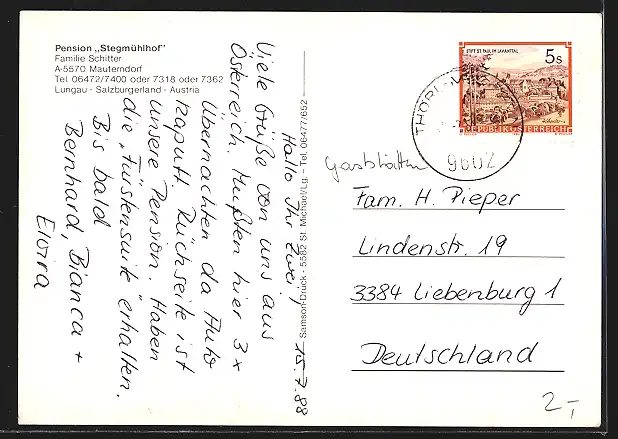 Pension „Stegmühlhof"
Familie Schitter
A-5570 Mauterndorf
Tel. 06472/7400 oder 7318 oder 7362
Lungau - Salzburgerland - Austria
Hallo Ihr zwei, 15.7.88
Viele Grüße von uns aus
Österreich. Mußten hier 3x
Übernachten da Auto
kaputt. Rückseite ist
unsere Pension. Haben
die „Fürstensuite" erhalten.
Bis bald
Bernhard, Bianca +
Elvira
Samson-Druck - 5582 St. Michael/Lg. - Tel. 06477/652
STIFT ST. PAUL IM LAVANTTAL
5s
REPUBLIK ÖSTERREICH
THÖRL-
9602
Gaststätten
Fam. H. Pieper
Lindenstr. 19
3384 Liebenburg 1
Deutschland
2,-